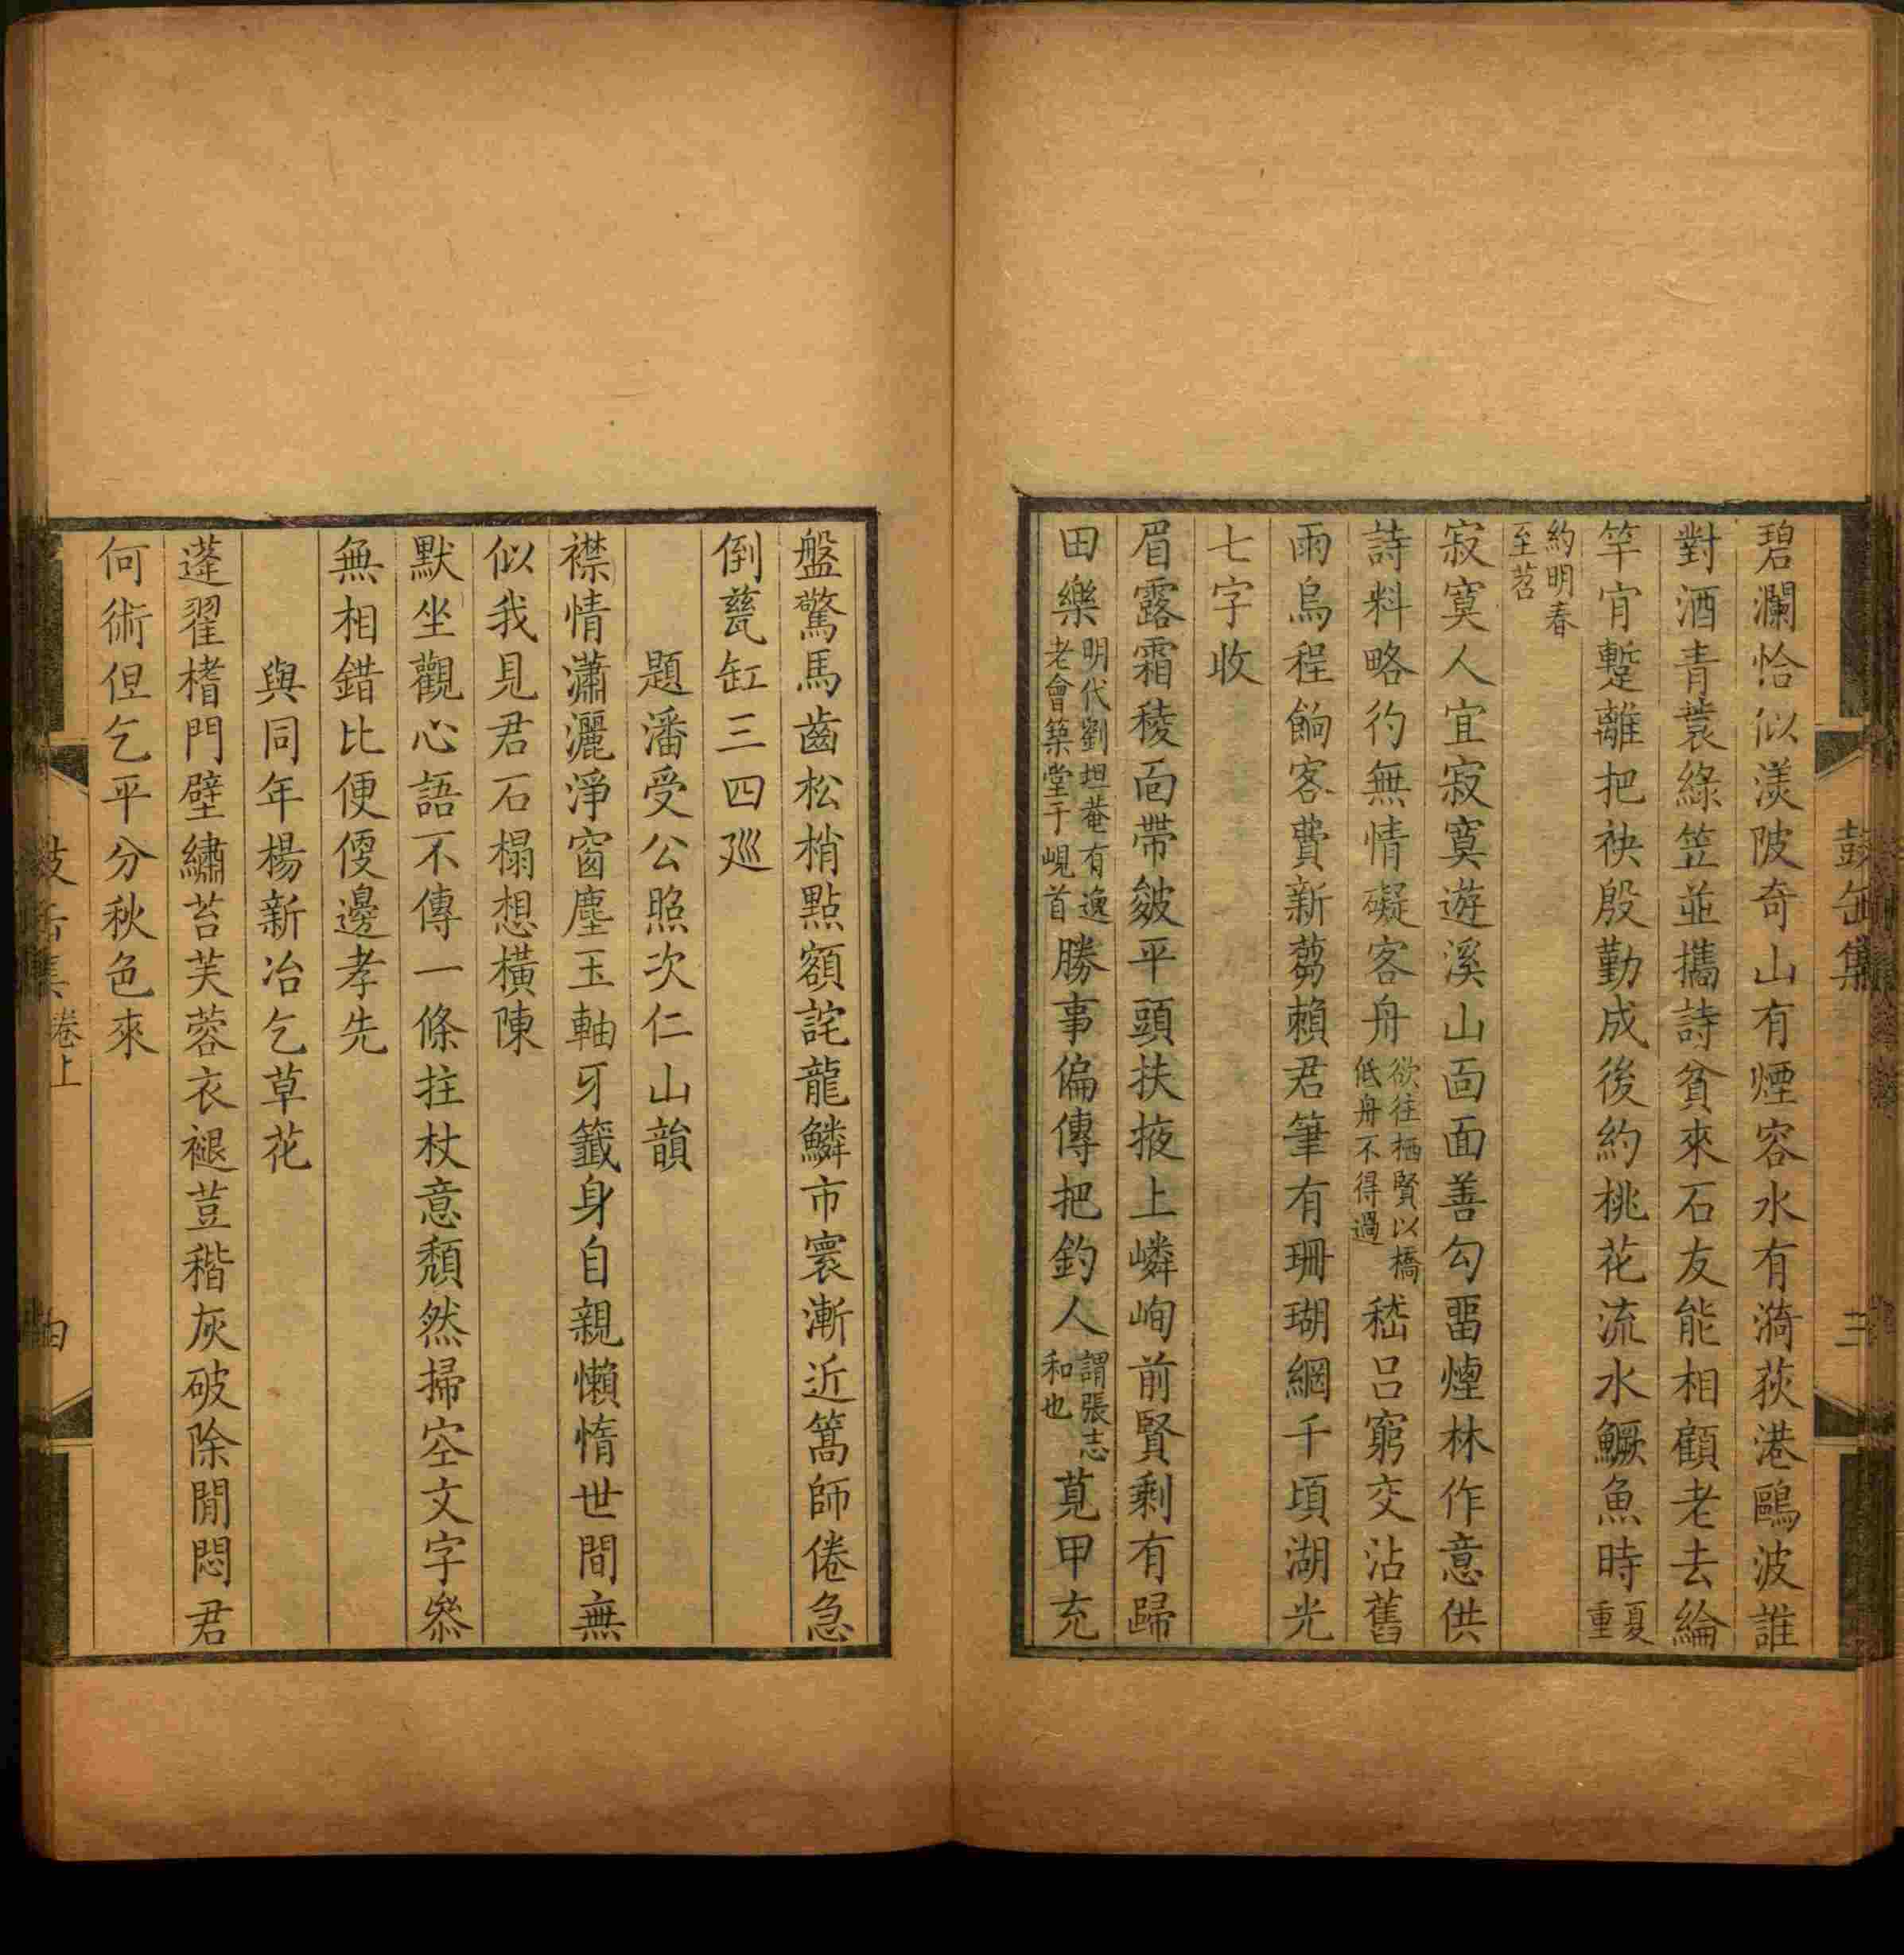 鼓缶集 三
碧瀾恰似渼陂奇山有煙容水有漪荻港鷗波誰
對酒青蓑綠笠並攜詩貧來石友能相顧老去綸
竿肯蹔離把袂殷勤成後約桃花流水鱖魚時重夏
約明春至苕
寂寞人宜寂寞遊溪山面面善勾畱煙林作意供
詩料略彴無情礙客舟欲往栖賢以橋低舟不得過嵇呂窮交沾舊
雨烏程餉客費新蒭賴君筆有珊瑚網千頃湖光
七字收
眉露霜稜面帶皴平頭扶掖上嶙峋前賢剩有歸
田樂明代劉坦菴有逸老會築堂于峴首勝事偏傳把釣人謂張志和也莧甲充
盤驚馬齒松梢點額詫龍鱗市寰漸近篙師倦急
倒甆缸三四巡
題潘受公照次仁山韻
襟情瀟灑淨窗塵玉軸牙籤身自親懶惰世間無
似我見君石榻想橫陳
默坐觀心語不傳一條拄杖意頹然掃空文字叅
無相錯比便便邊孝先
與同年楊新冶乞草花
蓬翟楮門壁繡苔芙蓉衣褪荳稭灰破除閒悶君
何術但乞平分秋色來
卷上